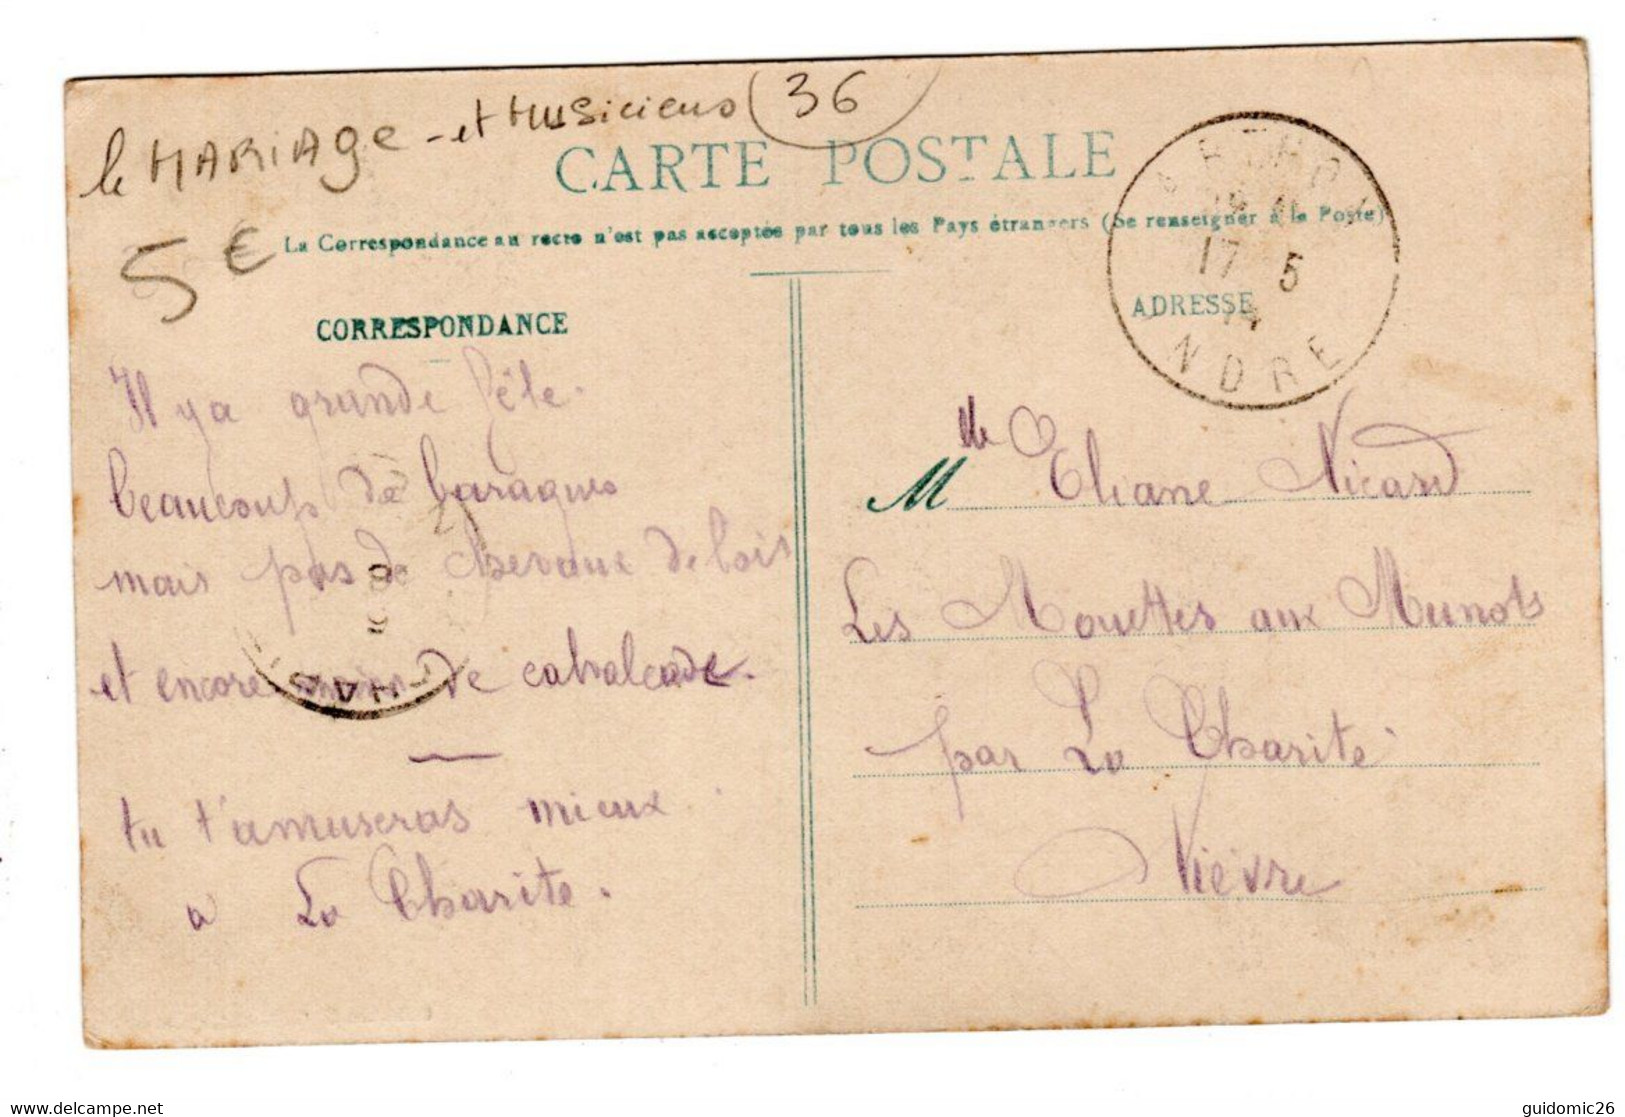 le MARIAGE - et Musiciens 36
CARTE POSTALE
5 € La Correspondance au recto n'est pas acceptée par tous les Pays étrangers (Se renseigner à la Poste)
17 5
14
INDRE
CORRESPONDANCE
ADRESSE
Il y a grande fête.
beaucoup de baraques
mais pas de chevaux de bois
et encore moins de cavalcade.
tu t'amuseras mieux
a La Charité.
Mlle Eliane Nicard
Les Mouettes aux Munots
par La Charité
Nièvre
guidomic26